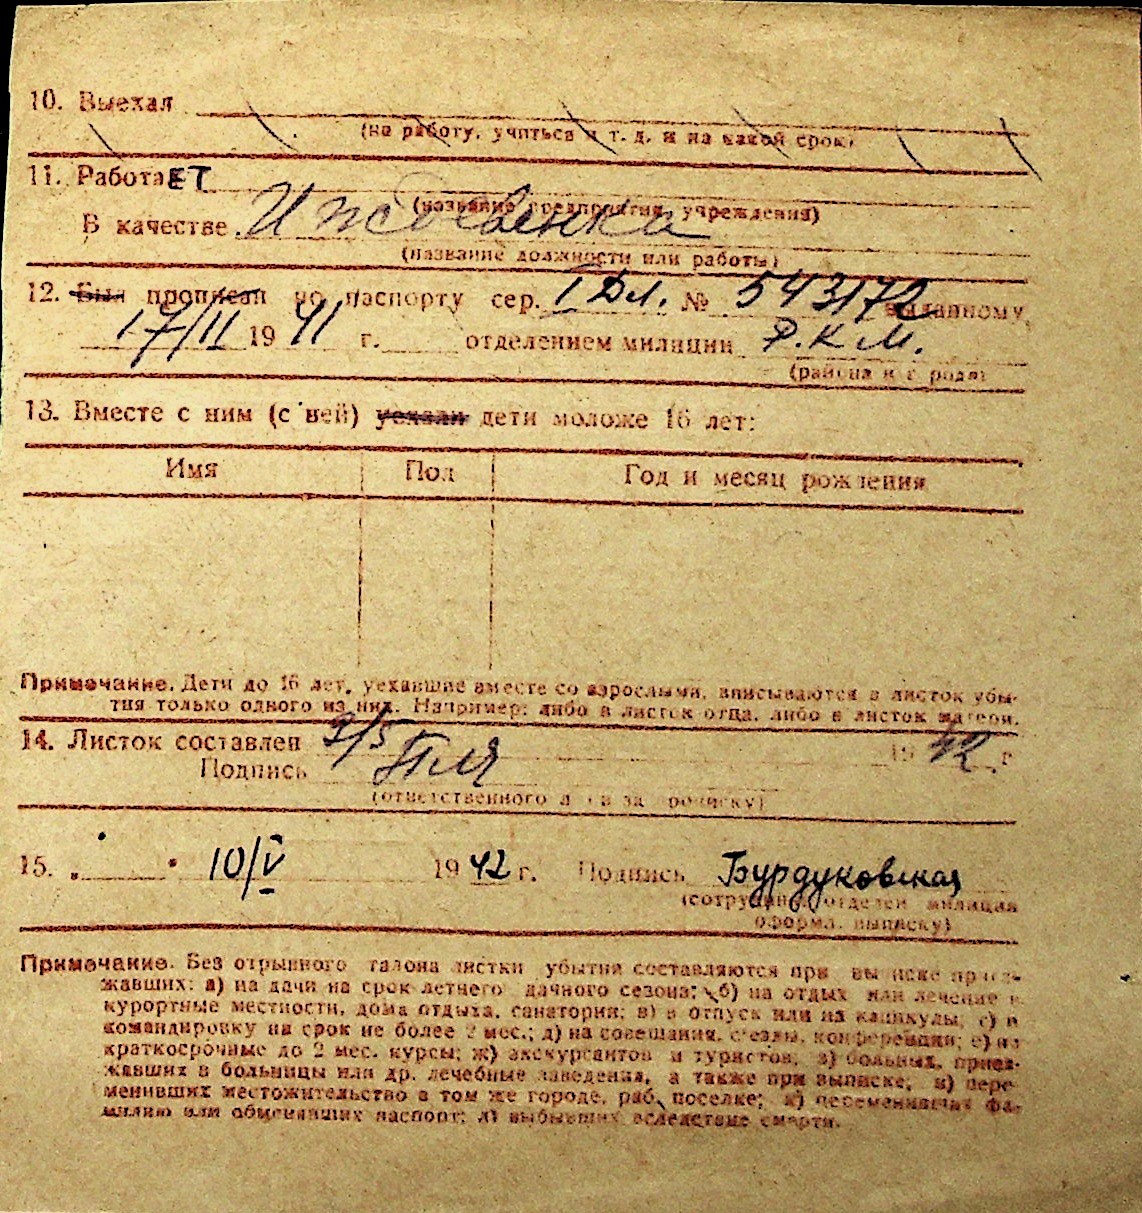 10. Выехал
(на работу, учиться и т. д. и на какой срок)
11. РаботаЕТ
(название предприятия, учреждения)
В качестве Иждевенка
(название должности или работы)
12. Был прописан по паспорту сер. I Дл. № 543172 выданному
17/II 1941 г. отделением милиции Р.К.М.
(района и города)
13. Вместе с ним (с ней) уехали дети моложе 16 лет:
Имя Пол Год и месяц рождения
Примечание. Дети до 16 лет, уехавшие вместе со взрослыми, вписываются в листок убы-
тия только одного из них. Например: либо в листок отца, либо в листок матери.
14. Листок составлен 9/5 1942 г
Подпись
(ответственного лица за прописку)
15. „ " 10/V 1942 г. Подпись Бурдуковская
(сотрудника отделен милиция
оформ. выписку)
Примечание. Без отрывного талона листки убытия составляются при выписке приез-
жавших: а) на дачи на срок летнего дачного сезона; б) на отдых или лечение в
курортные местности, дома отдыха, санатории; в) в отпуск или на каникулы; г) в
командировку на срок не более 2 мес.; д) на совещания, съезды, конференции; е) на
краткосрочные до 2 мес. курсы; ж) экскурсантов и туристов; з) больных, приез-
жавших в больницы или др. лечебные заведения, а также при выписке; и) пере-
менивших местожительство в том же городе, раб. поселке; к) переменивших фа-
милию или обменявших паспорт; л) выбывших вследствие смерти.